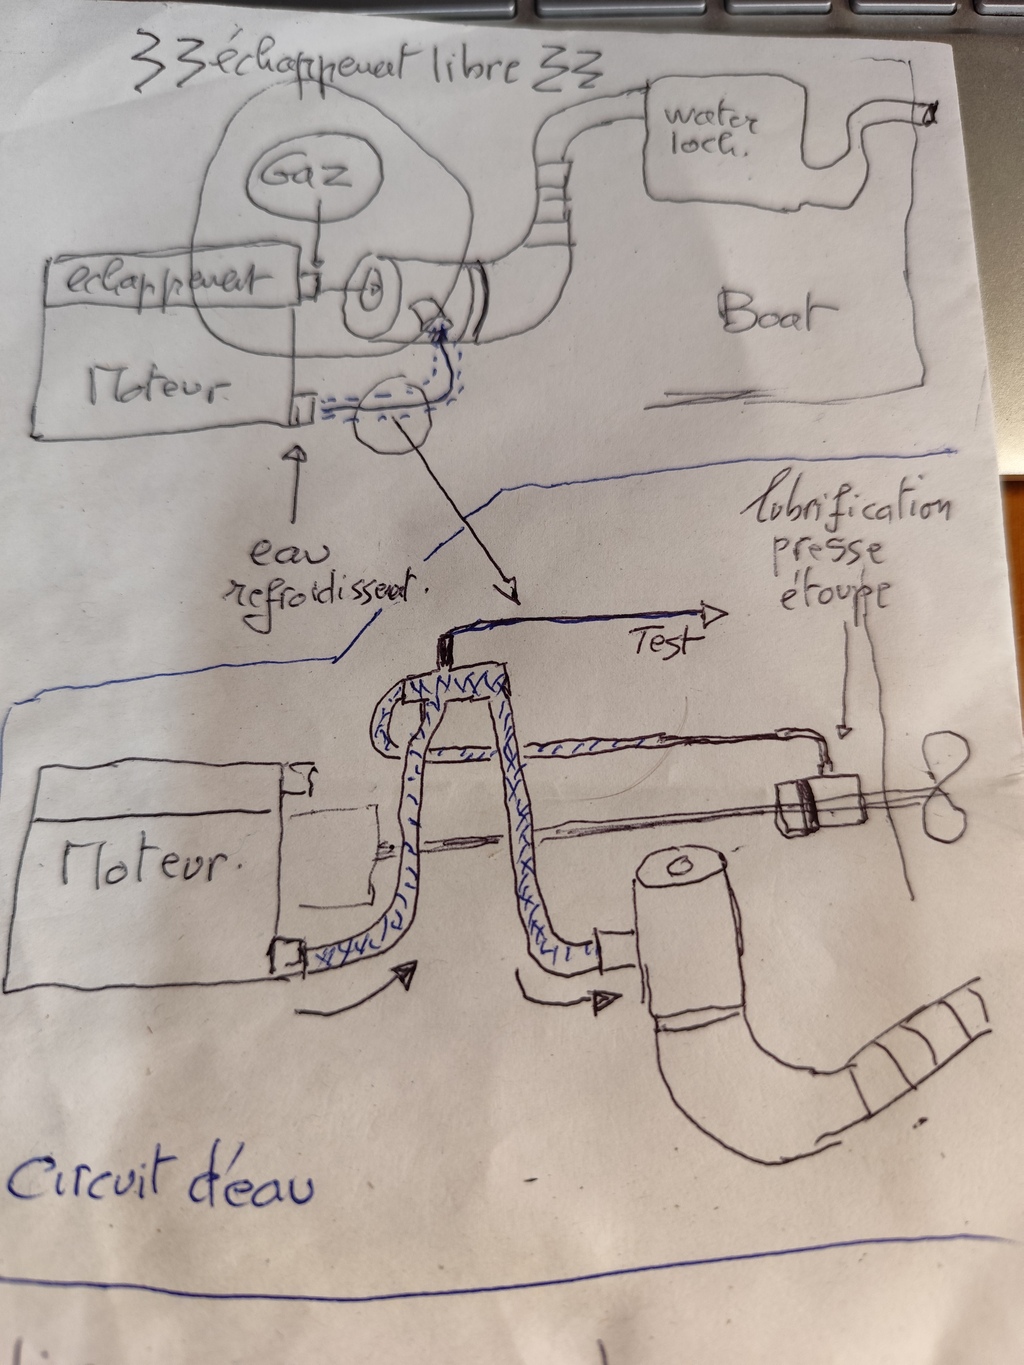 échappement libre
water
lock.
Gaz
échappement
Boat
Moteur.
lubrification
presse
étoupe
eau
refroidissent.
Test
Moteur.
Circuit d'eau